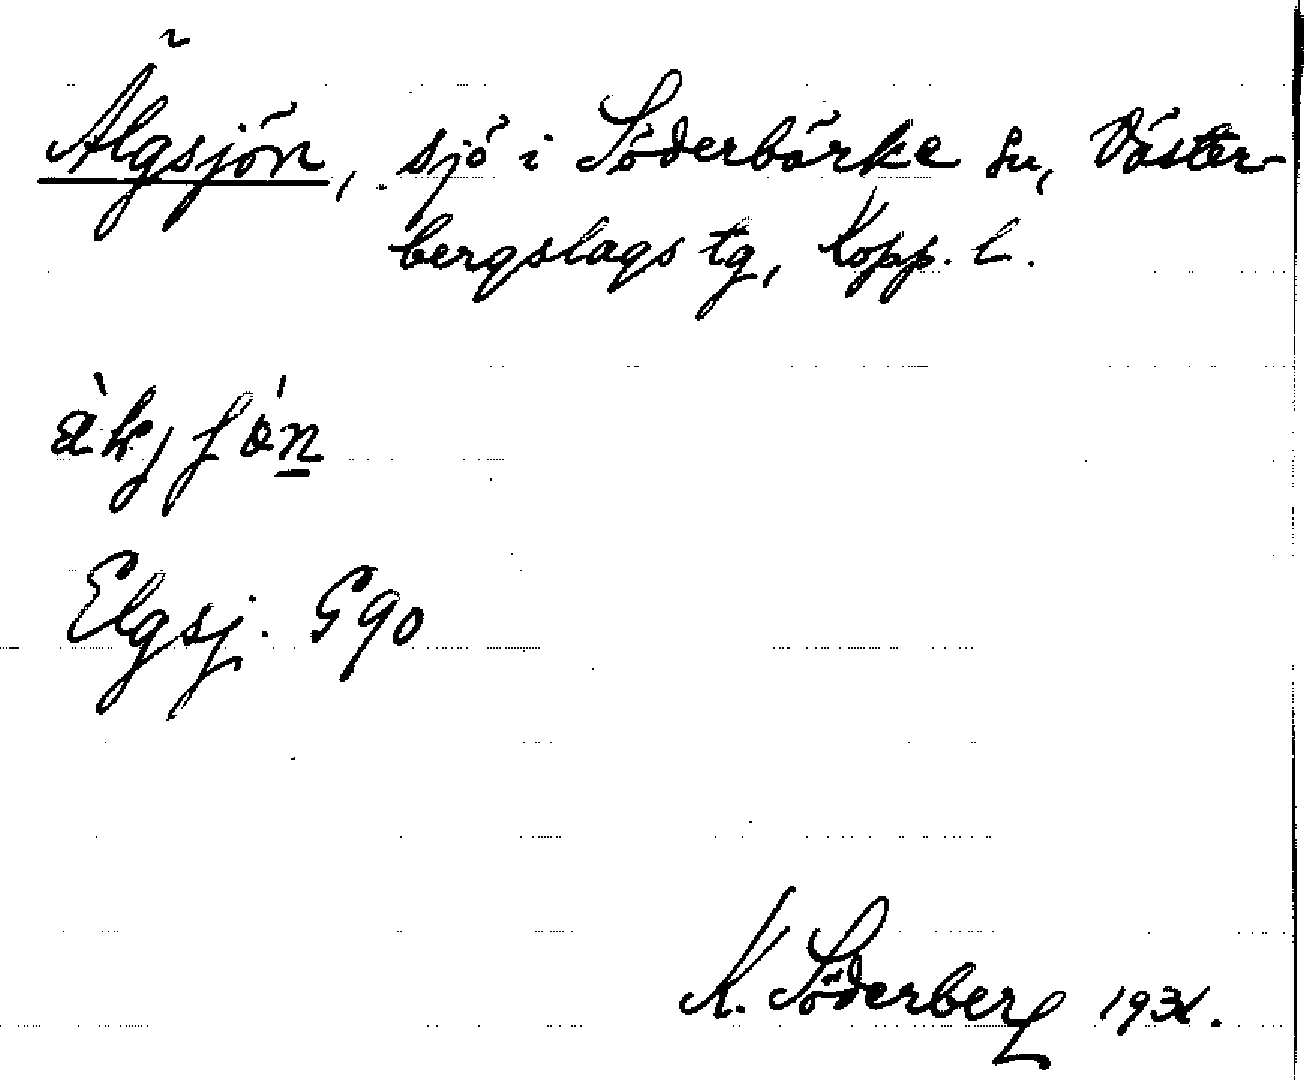 Älgsjön, sjö i Söderbärke sn, Väster-
bergslags tg, Kopp. l.
Elgsj. G90
K. Söderberg 1931.